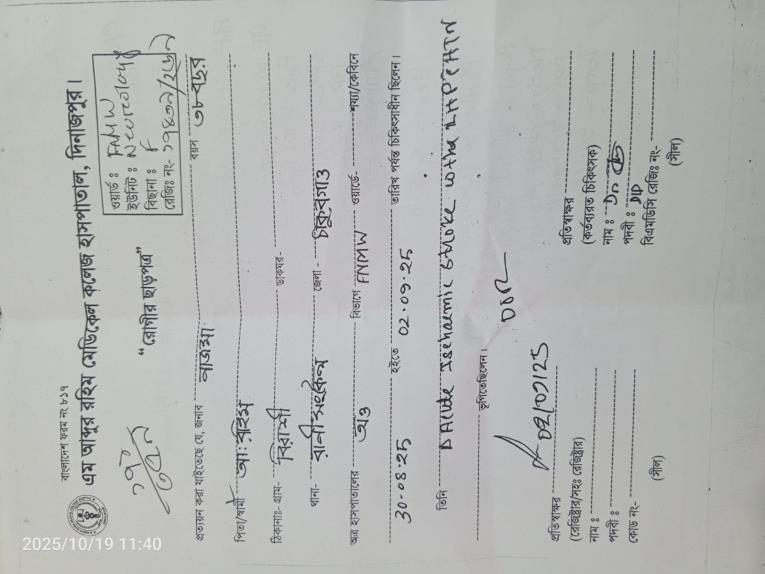 বাংলাদেশ ফরম নং ৮১৭
এম আব্দুর রহিম মেডিকেল কলেজ হাসপাতাল, দিনাজপুর।
"রোগীর ছাড়পত্র"
ওয়ার্ড : FMW
ইউনিট : Neurology
বিছানা : F
রেজিঃ নং-
প্রত্যয়ন করা যাইতেছে যে, জনাব নাজমা বয়স ৩৮ বছর
পিতা/স্বামী আঃ রহিম
ঠিকানাঃ- গ্রাম- বিরাশী ডাকঘর-
থানা- রানীশংকৈল জেলা - ঠাকুরগাঁও
অত্র হাসপাতালের অত্র বিভাগে FMW ওয়ার্ডে- শয্যা/কেবিনে
30-08-25 হইতে 02-09-25 তারিখ পর্যন্ত চিকিৎসাধীন ছিলেন।
তিনি Acute Ischaemic Stroke with HTN
ভুগিতেছিলেন।
DOR
02/09/25
প্রতিস্বাক্ষর
(রেজিষ্ট্রার/সহঃ রেজিষ্ট্রার)
নাম :
পদবী :
কোড নং-
(সীল)
প্রতিস্বাক্ষর
(কর্তব্যরত চিকিৎসক)
নাম : Dr
পদবী :
বিএমডিসি রেজিঃ নং-
(সীল)
2025/10/19 11:40